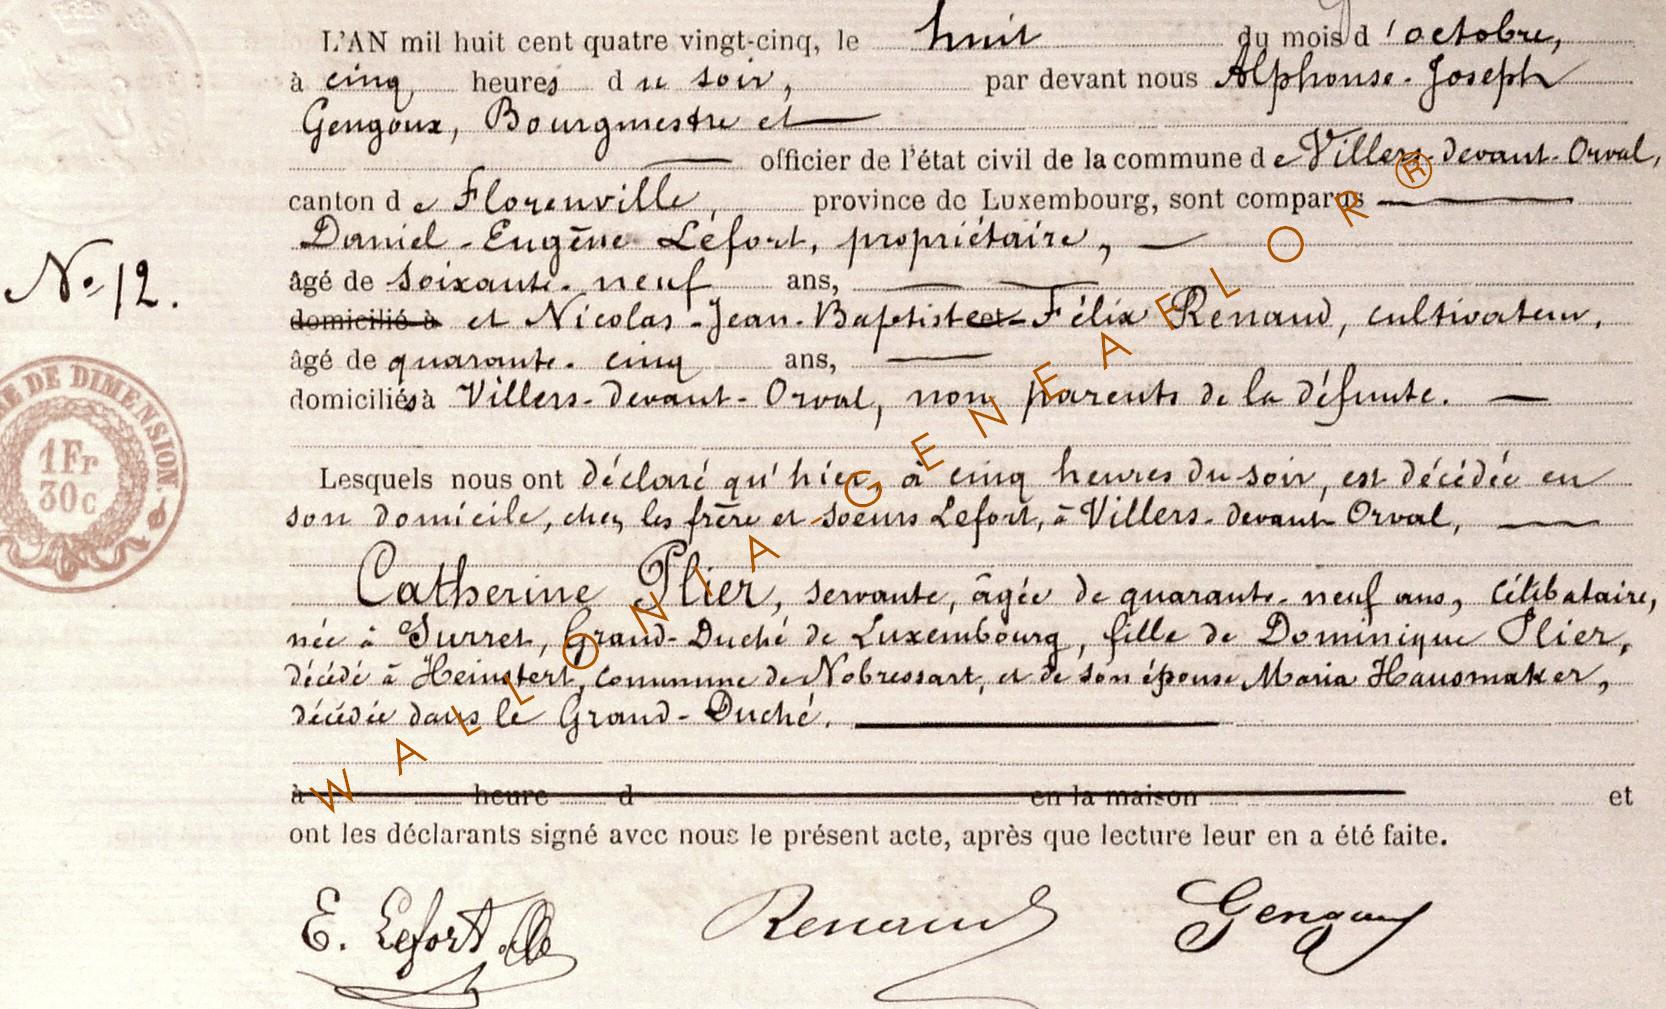 L'AN mil huit cent quatre vingt-cinq, le huit du mois d'octobre,
à cinq heures du soir, par devant nous Alphonse-Joseph
Gengoux, Bourgmestre et
officier de l'état civil de la commune de Villers-devant-Orval,
canton de Florenville, province de Luxembourg, sont comparus
Daniel-Eugène Lefort, propriétaire,
âgé de soixante-neuf ans,
domicilié à et Nicolas-Jean-Baptiste et Félix Renaud, cultivateur,
N° 12.
âgé de quarante-cinq ans,
domiciliés à Villers-devant-Orval, non parents de la défunte.
RE DE DIMENSION.
1Fr
30c
Lesquels nous ont déclaré qu'hier à cinq heures du soir, est décédée en
son domicile, chez les frère et soeurs Lefort, à Villers-devant-Orval,
Catherine Plier, servante, âgée de quarante-neuf ans, célibataire,
née à Surret, Grand-Duché de Luxembourg, fille de Dominique Plier,
décédé à Heinstert, Commune de Nobressart, et de son épouse Maria Hausmaker,
décédée dans le Grand-Duché.
à heure d en la maison et
ont les déclarants signé avec nous le présent acte, après que lecture leur en a été faite.
E. Lefort
Renaud
Gengoux
WALLONIA-GENEAFLOR®